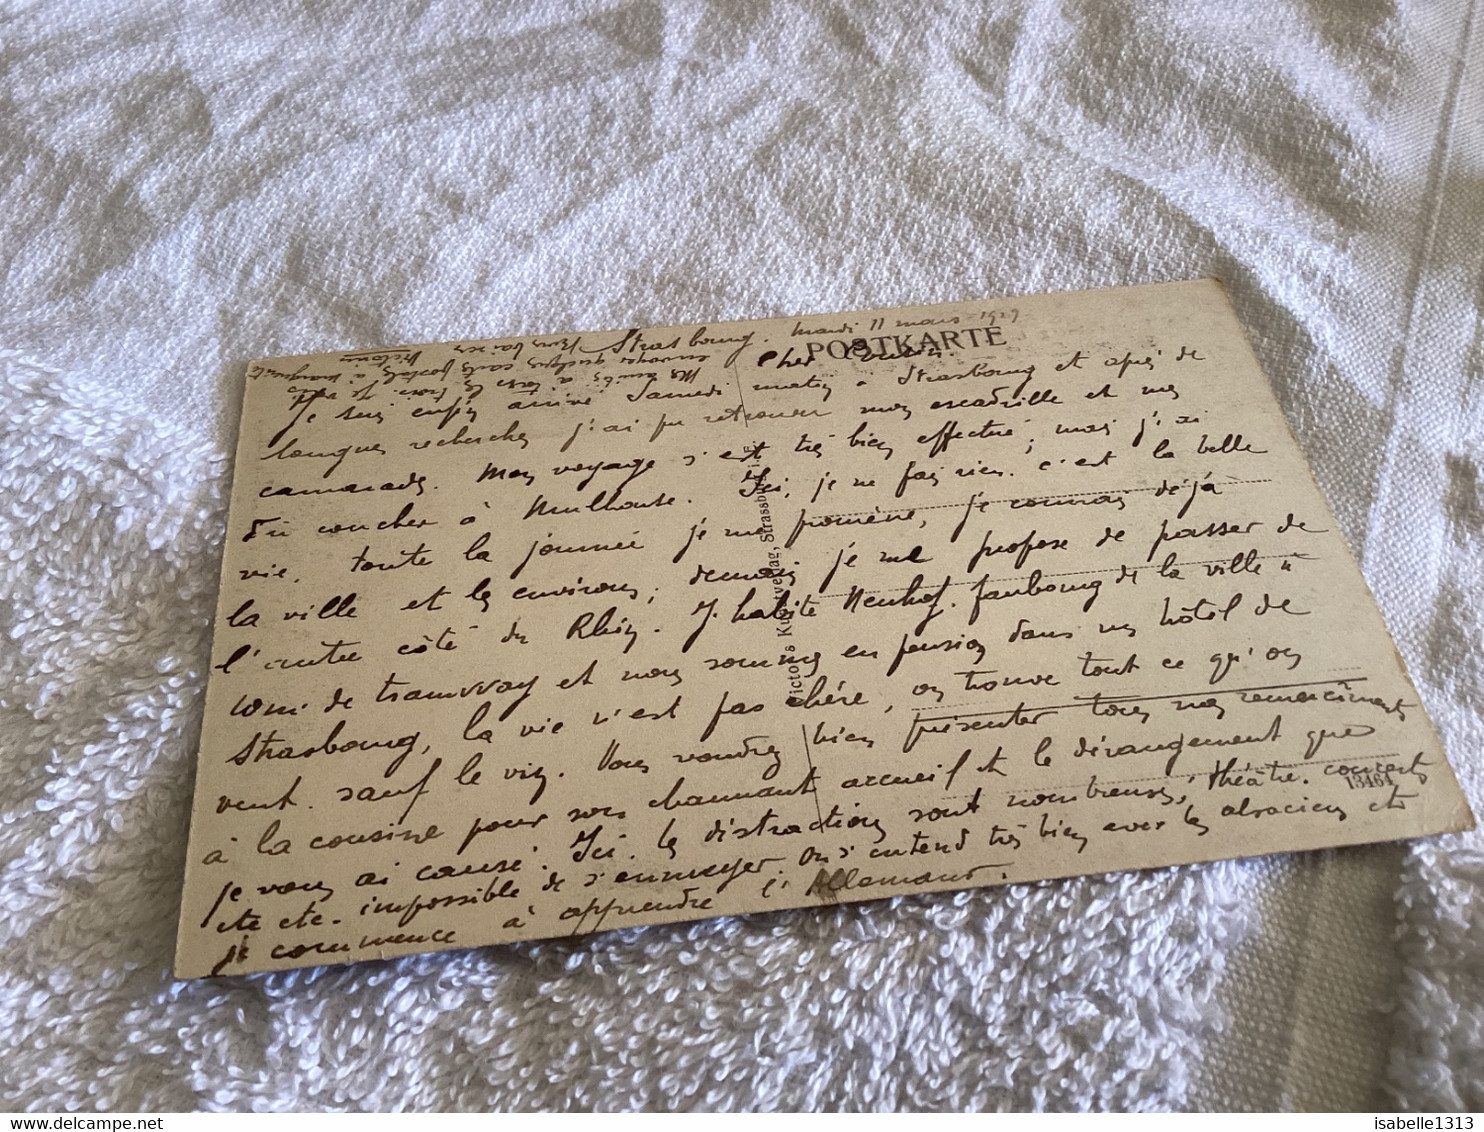 Strasbourg. Mardi 11 mars 1919
POSTKARTE
Cher Cousin.
Je suis enfin arrivé Samedi matin à Strasbourg et après de
longues recherches j'ai pu retrouver mon escadrille et mes
camarades. Mon voyage s'est très bien effectué, mais j'ai
dû coucher à Mulhouse. Ici, je ne fais rien. c'est la belle
vie. toute la journée je me promène, je connais déjà
la ville et les environs; demain je me propose de passer de
l'autre côté du Rhin. J'habite Neuhof. faubourg de la ville à
de tramway et nous sommes en pension dans un hôtel de
Strasbourg, la vie n'est pas chère, on trouve tout ce qu'on
veut. sauf le vin. Vous voudrez bien présenter tous nos remerciments
à la cousine pour son charmant accueil et le dérangement que
je vous ai causé. Ici. les distractions sont nombreuses, théâtre. concerts
etc etc. impossible de s'ennuyer. On s'entend très bien avec les alsaciens etc
je commence à apprendre l'Allemand.
Mes amitiés à tous
envoyer quelques cartes postales à Marguerite
Bons baisers
Victor's Kunstverlag, Strassburg i. E.
13464
isabelle1313